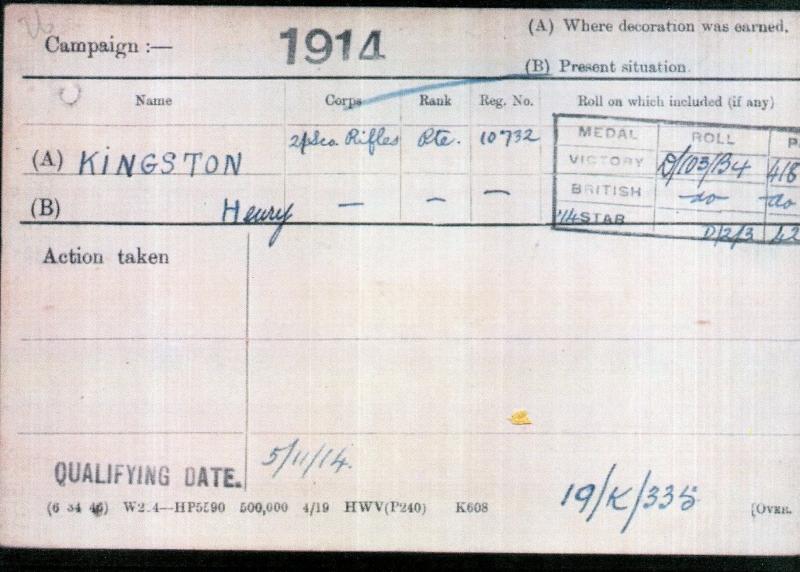 Campaign :— 1914 (A) Where decoration was earned.
(B) Present situation.
Name Corps Rank Reg. No. Roll on which included (if any)
(A) KINGSTON 2/Sco Rifles Pte. 10732
(B) Henry — — —
MEDAL ROLL P
VICTORY D/103/B4 418
BRITISH do do
'14 STAR D/2/3 42
Action taken
QUALIFYING DATE. 5/11/14.
(6 34 46) W2 4—HP5590 500,000 4/19 HWV(P240) K608
19/K/335
[OVER.